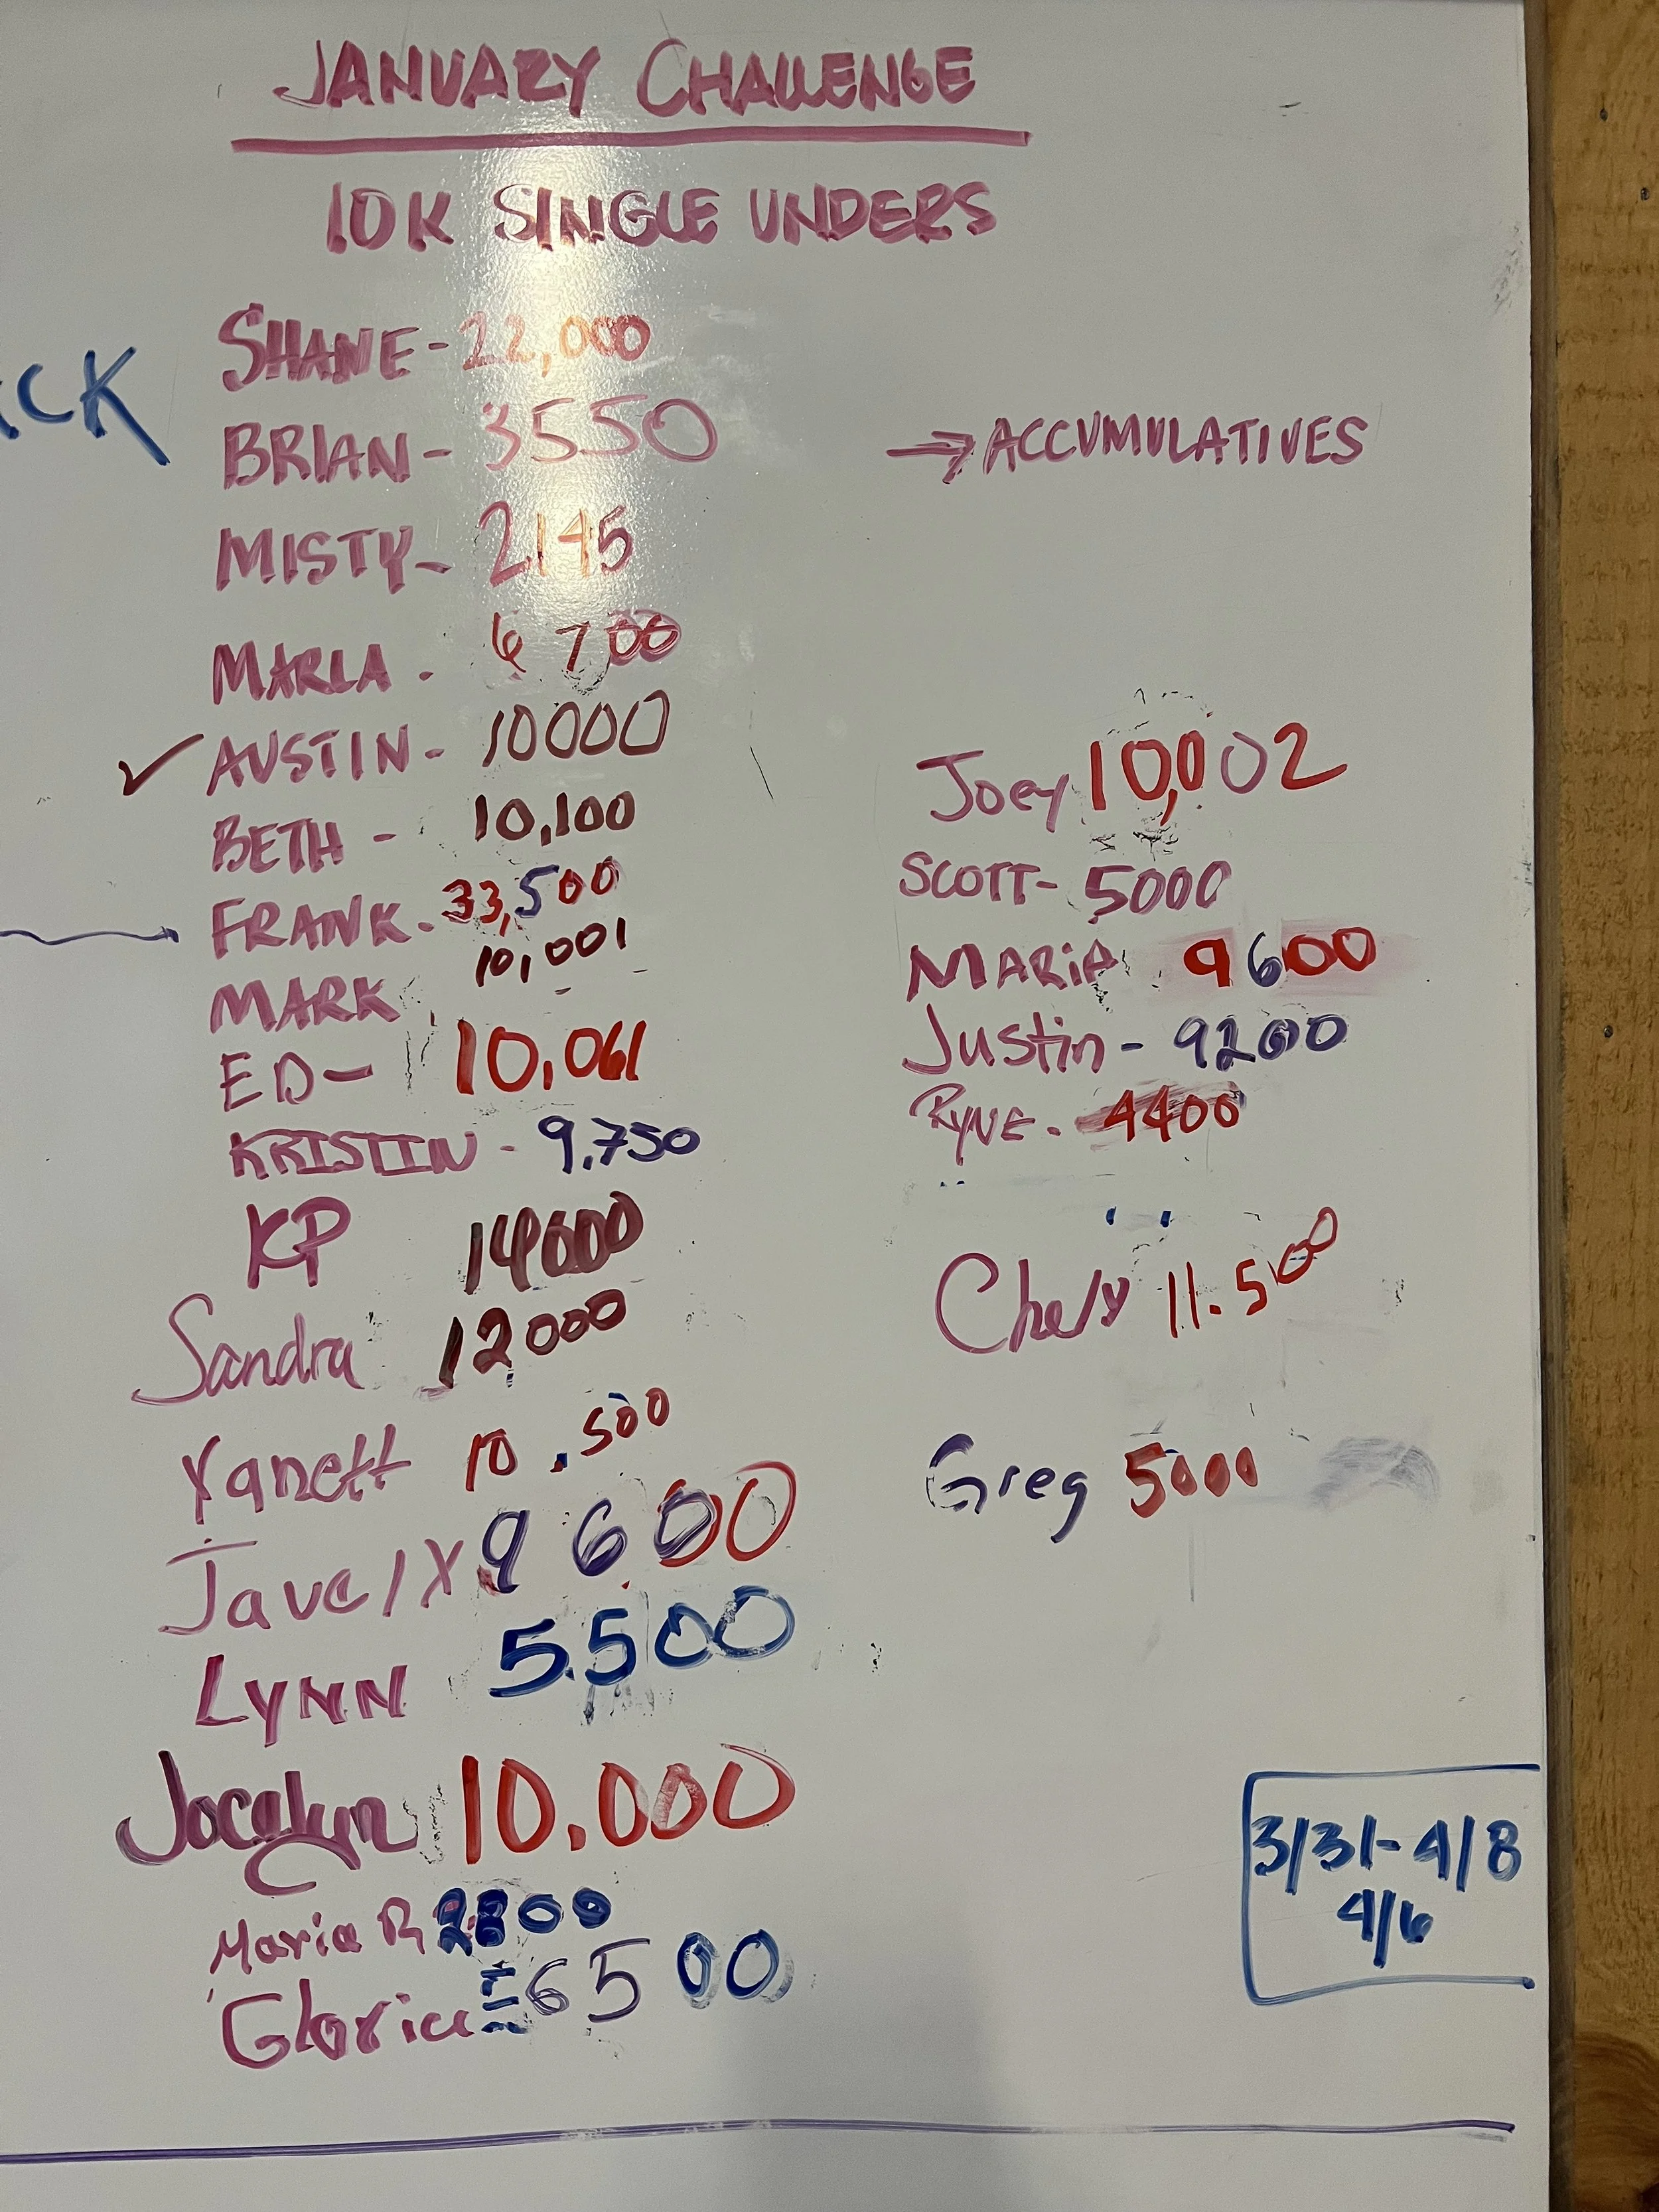 JANUARY CHALLENGE
10K SINGLE UNDERS
SHANE - 22,000
BRIAN - 3550
MISTY - 2145
MARLA - 6700
✓ AUSTIN - 10000
BETH - 10,100
FRANK - 33,500
MARK 10,001
ED - 10,061
KRISTIN - 9,750
KP 14000
Sandra 12000
Yanett 10.500
9600
LYNN 5.500
Jocelyn 10.000
Maria R 2800
Gloria = 6500
→ ACCUMULATIVES
Joey 10,002
SCOTT - 5000
MARiA 9600
Justin - 9200
RYNE - 4400
Chely 11.500
Greg 5000
3/31 - 4/8
4/6